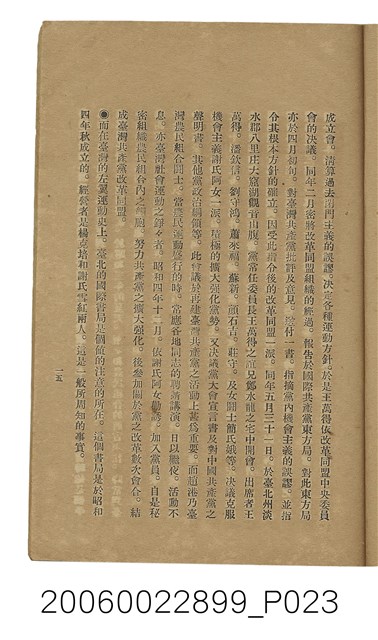 成立會。清算過去閉門主義的誤謬。決定各種運動方針。於是王萬得依改革同盟中央委員
會的決議。同年二月密將改革同盟組織的經過。報告於國際共產黨東方局。對此東方局
亦於四月初旬。對臺灣共產黨批評及意見。發付一書。指摘黨內機會主義的誤謬。並指
令其根本方針的確立。因受此指令後的改革同盟一派。同年五月三十一日。於臺北州淡
水郡八里庄大窠湖觀音山麓。黨常任委員長王萬得之庶兄鄭水龍之宅中開會。出席者王
萬得。潘欽信。劉守鴻。蕭來福。蘇新。顏石吉。莊守。及女鬪士簡氏娥等。決議克服
機會主義謝氏阿女一派。積極的擴大強化黨勢。又決議黨大會宣言書及對中國共產黨之
聲明書。其他黨政治綱領等。此會議於再建臺灣共產黨之活動上甚爲重要。而趙港乃臺
灣農民組合鬪士。當農民運動盛行的時。常應各地同志的聘請講演。日以繼夜。活動不
息。亦臺灣社會運動之錚々者。昭和四年十二月。依謝氏阿女勸誘。加入黨員。自是秘
密組織農民組合內之細胞。努力共產黨之擴大強化。後參加關於黨之改革數次會合。結
成臺灣共產黨改革同盟。
◉而在臺灣的左翼運動史上。臺北的國際書局是個値的注意的所在。這個書局是於昭和
四年秋成立的。經營者是楊克培和謝氏雪紅兩人。這是一般所周知的事實。
一五
20060022899_P023